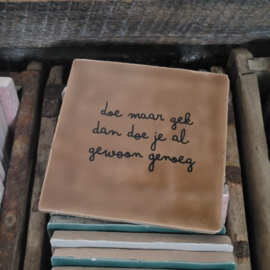 doe maar gek
dan doe je al
gewoon genoeg